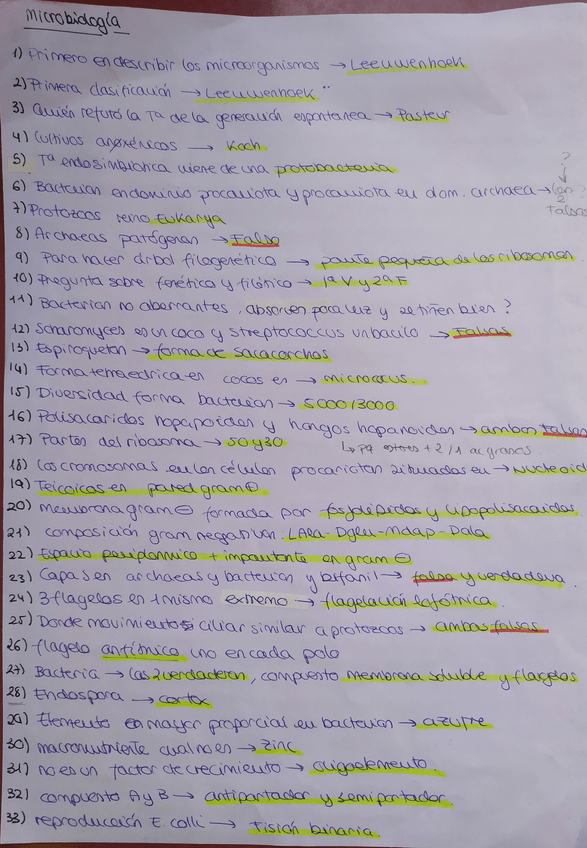 microbiología
1) Primero en describir los microorganismos → Leeuwenhoek
2) Primera clasificación → Leeuwenhoek
3) Quién refutó la Tª de la generación espontanea → Pasteur
4) Cultivos axénicos → Koch
5) Tª endosimbiotica viene de una protobacteria
?
6) Bacterias en dominio procariota y procariota en dom. archaea → las 2 Falsas
7) Protozoos reino Eukarya
8) Archaeas patógenas → Falso
9) Para hacer árbol filogenético → parte pequeña de los ribosomas.
10) Pregunta sobre fenético y filético → 1ª V y 2ª F
11) Bacterias no aberrantes, absorven poca luz y se tiñen bien?
12) Scharomyces es un coco y streptococcus un bacilo → Falsas
13) Espiroquetas → forma de sacacorchos
14) Forma tetraedrica en cocos es → micrococcus.
15) Diversidad forma bacterias → 5000/3000
16) Polisacaridos hopanoides y hongos hopanoides → ambas falsas
17) Partes del ribosoma → 50 y 30
18) Los cromosomas en las células procariotas situados en → Nucleoide
19) Teicoicos en pared gram⊕
20) Membrana gram⊖ formada por fosfolípidos y lipopolisacaridos.
21) composición gram negativas: LAla-Dglu-Mdap-Dala
22) Espacio periplasmico + importante en gram⊖
23) Capa S en archaeas y bacterias y bifanil → falsa y verdadera.
24) 3 flagelos en 1 mismo extremo → flagelación lofótrica.
25) Donde movimientos ciliar similar a protozoos → ambas falsas
26) flagelo anfítrico uno en cada polo
27) Bacteria → las 2 verdaderas, compuesto membrana soluble y flagelos
28) Endospora → cortex
29) Elemento en mayor proporcial en bacterias → azufre
30) macronutriente cual no es → zinc
31) no es un factor de crecimiento → oligoelemento.
32) compuesto A y B → antiportador y simportador.
33) reproducción E. colli → Fisión binaria.